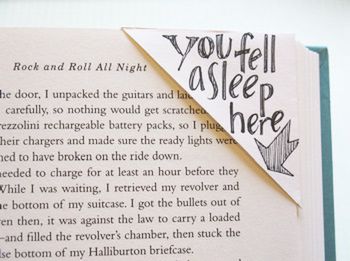 you fell
asleep
here
Rock and Roll All Night
he door, I unpacked the guitars and
carefully, so nothing would get scratched
rezzolini rechargeable battery packs, so I
heir chargers and made sure the ready lights were
ned to have broken on the ride down.
needed to charge for at least an hour before they
While I was waiting, I retrieved my revolver and
e bottom of my suitcase. I got the bullets out of
ven then, it was against the law to carry a loaded
—and filled the revolver's chamber, then stuck the
lse bottom of my Halliburton briefcase.